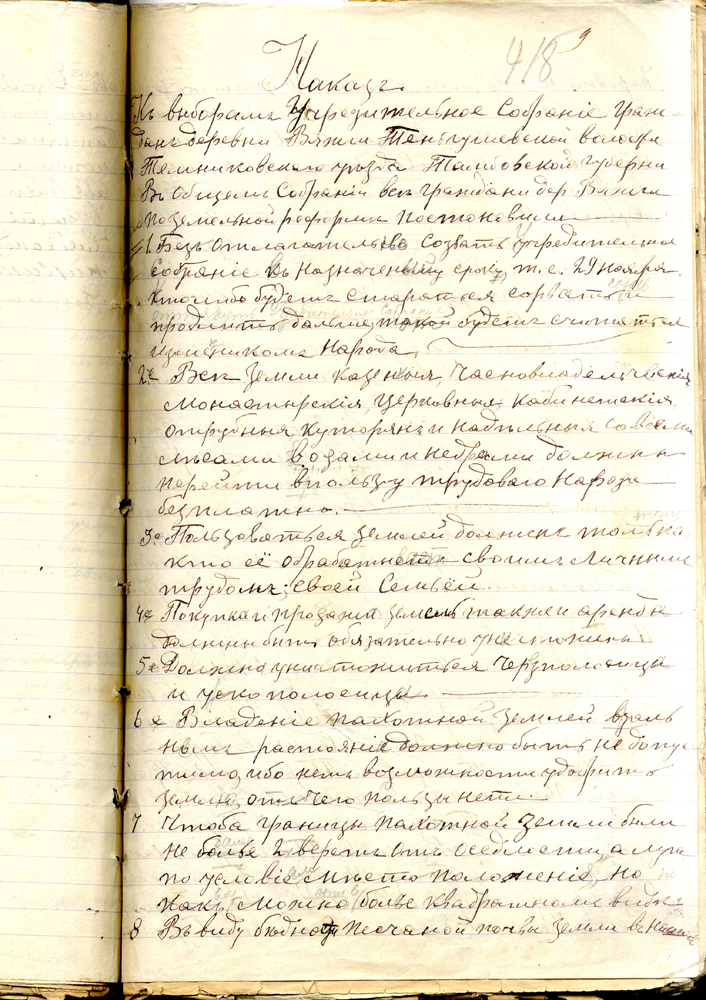 418 9
Наказъ.
Къ выборамъ Учредительное Собраніе граж-
данъ деревни Вяжги Теньгушевской волости
Темниковскаго уѣзда Тамбовской Губерни
Въ Общемъ Собраніи всѣ граждани дер. Вяжги
поземельной реформѣ постоновили
§1. Безъ Отлагательство Созвать учредительное
Собраніе Къ назначеному сроку, т. е. 29 ноября.
кто либо будетъ старатся сорвать и
продлить дальше, такой будетъ считатся
изменикомъ Народа,
2е Всѣ Земли казеныя, Часновладельческія
Монастырскія, Церковныя, Кабинетскія,
отрубныя, Куторянъ и надѣльныя со всеми
лѣсами водами и недрами должны
перейти въ пользу трудоваго Народа
безплатно.
3е Пользоваться землей должен только
кто её обрабатнетъ своимъ личнымъ
трудомъ, своей Семьёй.
4е Покупка и продажи земель также и аренды
должны быть обязательно унистожины
5е Должно унистожиться Черзполосица
и ускополосицы.
6е Владеніе пахотной Землей вдаль
немъ растояніе должно быть не допус
тимо, ибо нетъ возможности удобрить
землю, отъ Чего пользы нетъ.
7 Чтоба границы пахотной Земли были
не болѣе 2 верстъ отъ оседлости, а
по условіе мѣсто положеніе, но
какъ можно болѣе квадратномъ видѣ
8 Въ виду бѣдной песчаной почвы земли въ